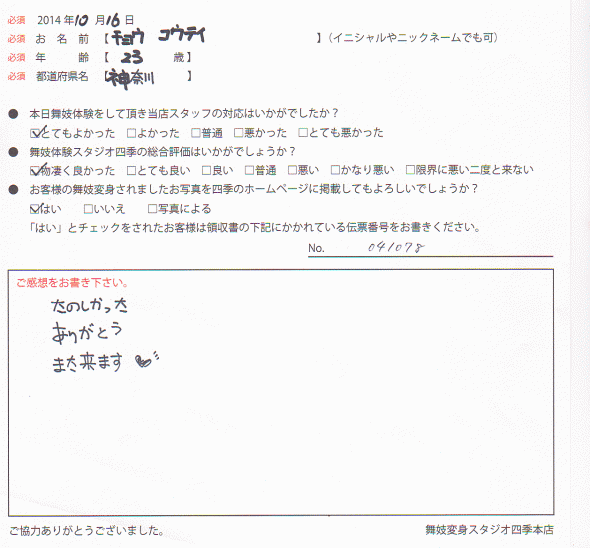 必須 2014年10月16日
必須 お名前 【チョウ コウテイ 】(イニシャルやニックネームでも可)
必須 年齢 【 23 歳】
必須 都道府県名 【神奈川 】
● 本日舞妓体験をして頂き当店スタッフの対応はいかがでしたか?
☑とてもよかった □よかった □普通 □悪かった □とても悪かった
● 舞妓体験スタジオ四季の総合評価はいかがでしょうか?
☑物凄く良かった □とても良い □良い □普通 □悪い □かなり悪い □限界に悪い二度と来ない
● お客様の舞妓変身されましたお写真を四季のホームページに掲載してもよろしいでしょうか?
☑はい □いいえ □写真による
「はい」とチェックをされたお客様は領収書の下記にかかれている伝票番号をお書きください。
No. 041078
ご感想をお書き下さい。
たのしかった
ありがとう
また来ます
ご協力ありがとうございました。 舞妓変身スタジオ四季本店